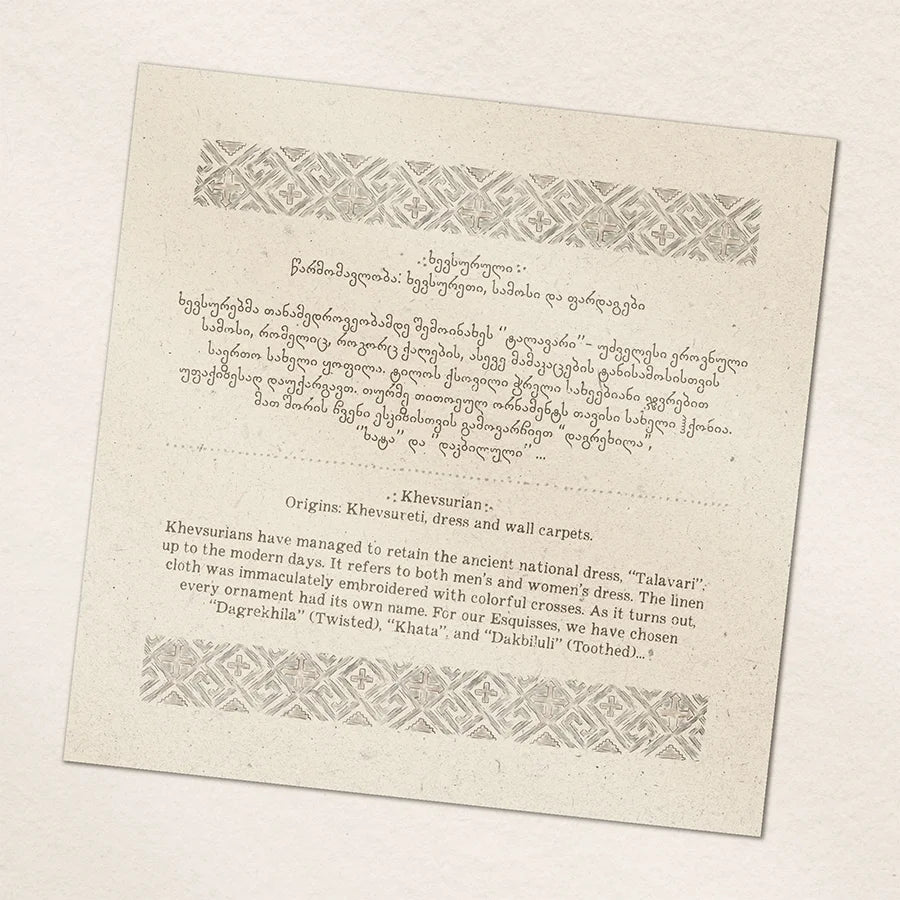 .: ხევსურული :.
წარმომავლობა: ხევსურეთი, სამოსი და ფარდაგები
ხევსურებმა თანამედროვეობამდე შემოინახეს “ტალავარი” – უძველესი ეროვნული
სამოსი, რომელიც, როგორც ქალების, ასევე მამაკაცების ტანისამოსისთვის
საერთო სახელი ყოფილა. ტილოს ქსოვილი ჭრელი სახეებიანი ჯვრებით
უფაქიზესად დაუქარგავთ. თურმე თითოეულ ორნამენტს თავისი სახელი ჰქონია.
მათ შორის ჩვენი ესკიზისთვის გამოვარჩიეთ “დაგრეხილა”,
“ხატა” და “დაკბილული” ...
.: Khevsurian :.
Origins: Khevsureti, dress and wall carpets.
Khevsurians have managed to retain the ancient national dress, “Talavari”.
up to the modern days. It refers to both men’s and women’s dress. The linen
cloth was immaculately embroidered with colorful crosses. As it turns out,
every ornament had its own name. For our Esquisses, we have chosen
“Dagrekhila” (Twisted), “Khata”, and “Dakbiluli” (Toothed)...